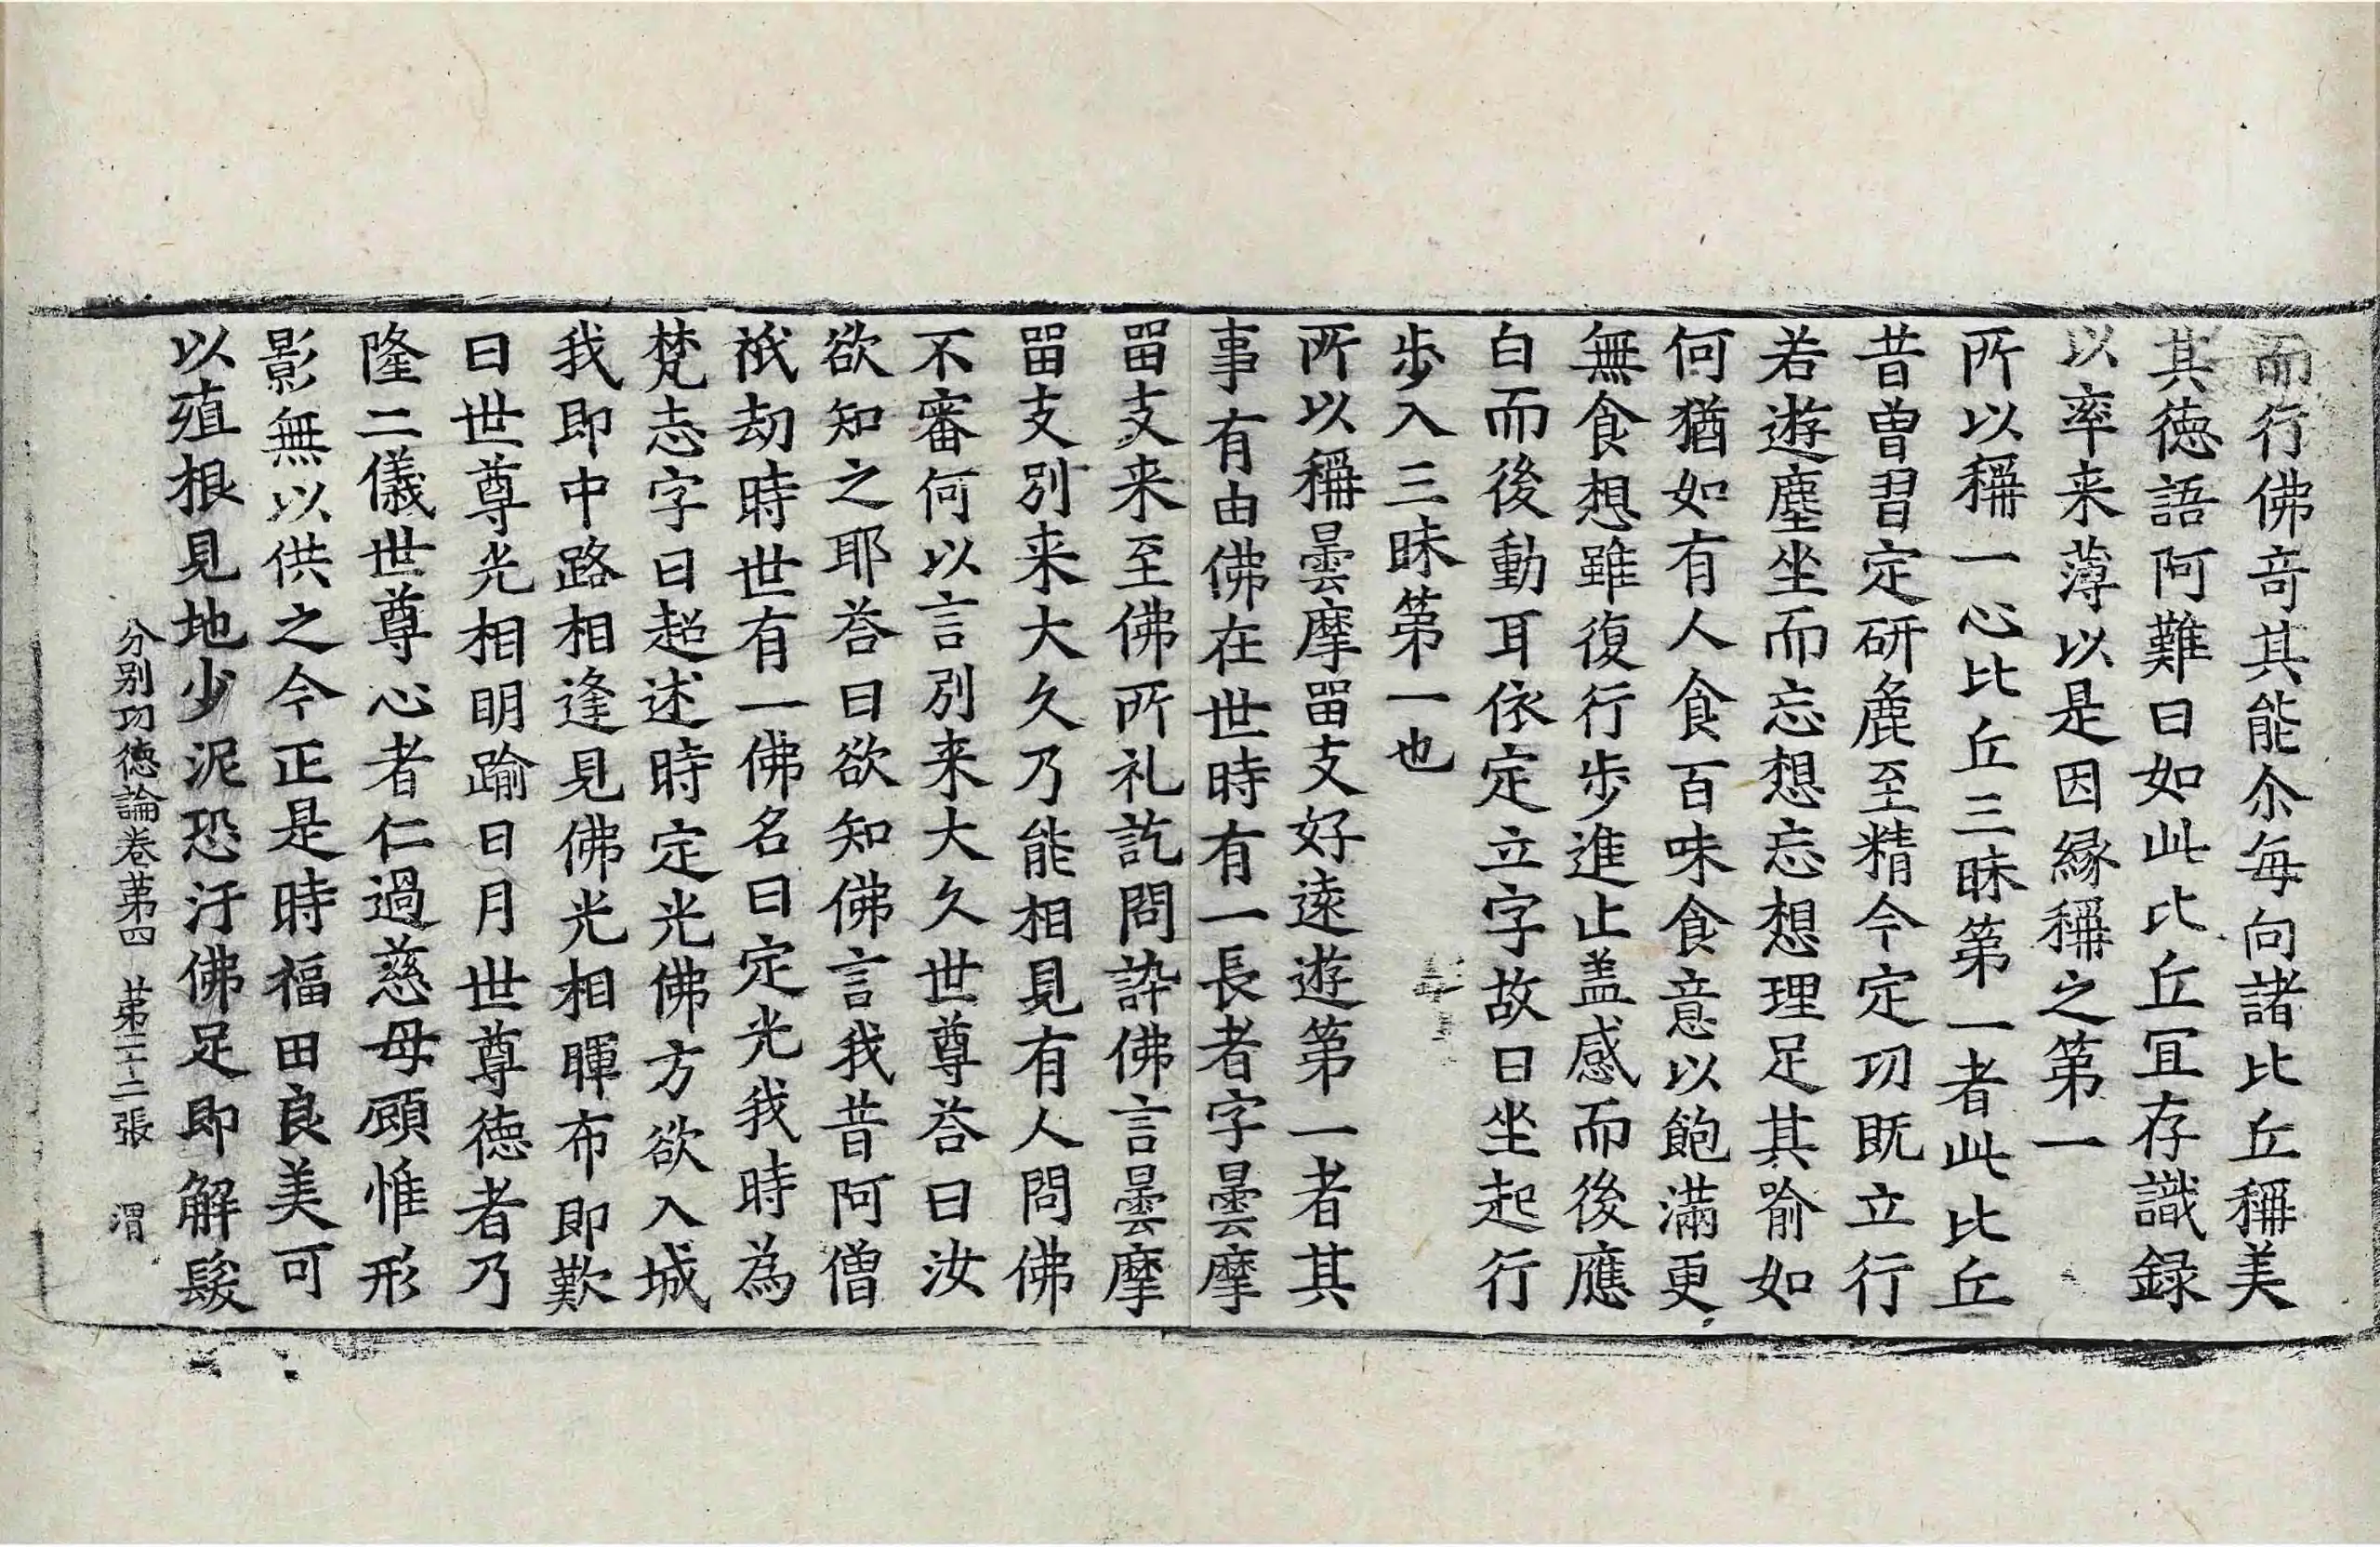 而行佛奇其能尒每向諸比丘稱美
其徳語阿難曰如此比丘冝存識録
以率来薄以是因縁稱之第一
所以稱一心比丘三昧第一者此比丘
昔曾習定研麁至精今定功既立行
若遊塵坐而忘想忘想理足其喻如
何猶如有人食百味食意以飽滿更
無食想雖復行步進止盖感而後應
白而後動耳依定立字故曰坐起行
步入三昧第一也
所以稱曇摩留支好遠遊第一者其
事有由佛在世時有一長者字曇摩
留支来至佛所礼訖問訊佛言曇摩
留支別来大久乃能相見有人問佛
不審何以言別来大久世尊荅曰汝
欲知之耶荅曰欲知佛言我昔阿僧
祇劫時世有一佛名曰定光我時為
梵志字曰超述時定光佛方欲入城
我即中路相逢見佛光相暉布即歎
曰世尊光相明踰日月世尊徳者乃
隆二儀世尊心者仁過慈母顧惟形
影無以供之今正是時福田良美可
以殖根見地少泥恐汙佛足即解髮
分別功徳論卷第四 第二十二張 渭